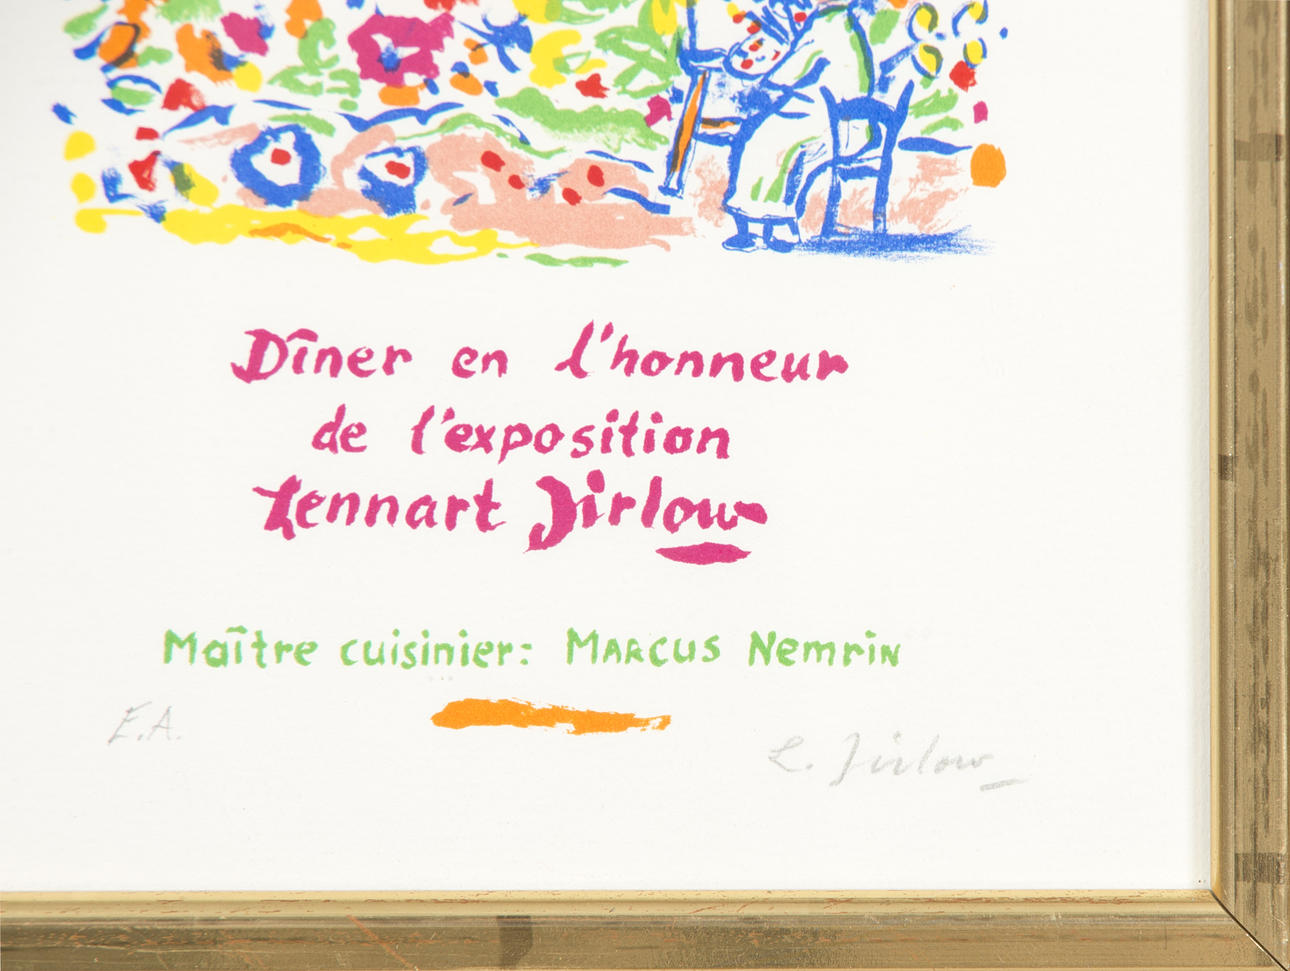 Dîner en l'honneur
de l'exposition
Lennart Jirlow
Maître cuisinier: MARCUS NemriN
E.A.
L. Jirlow